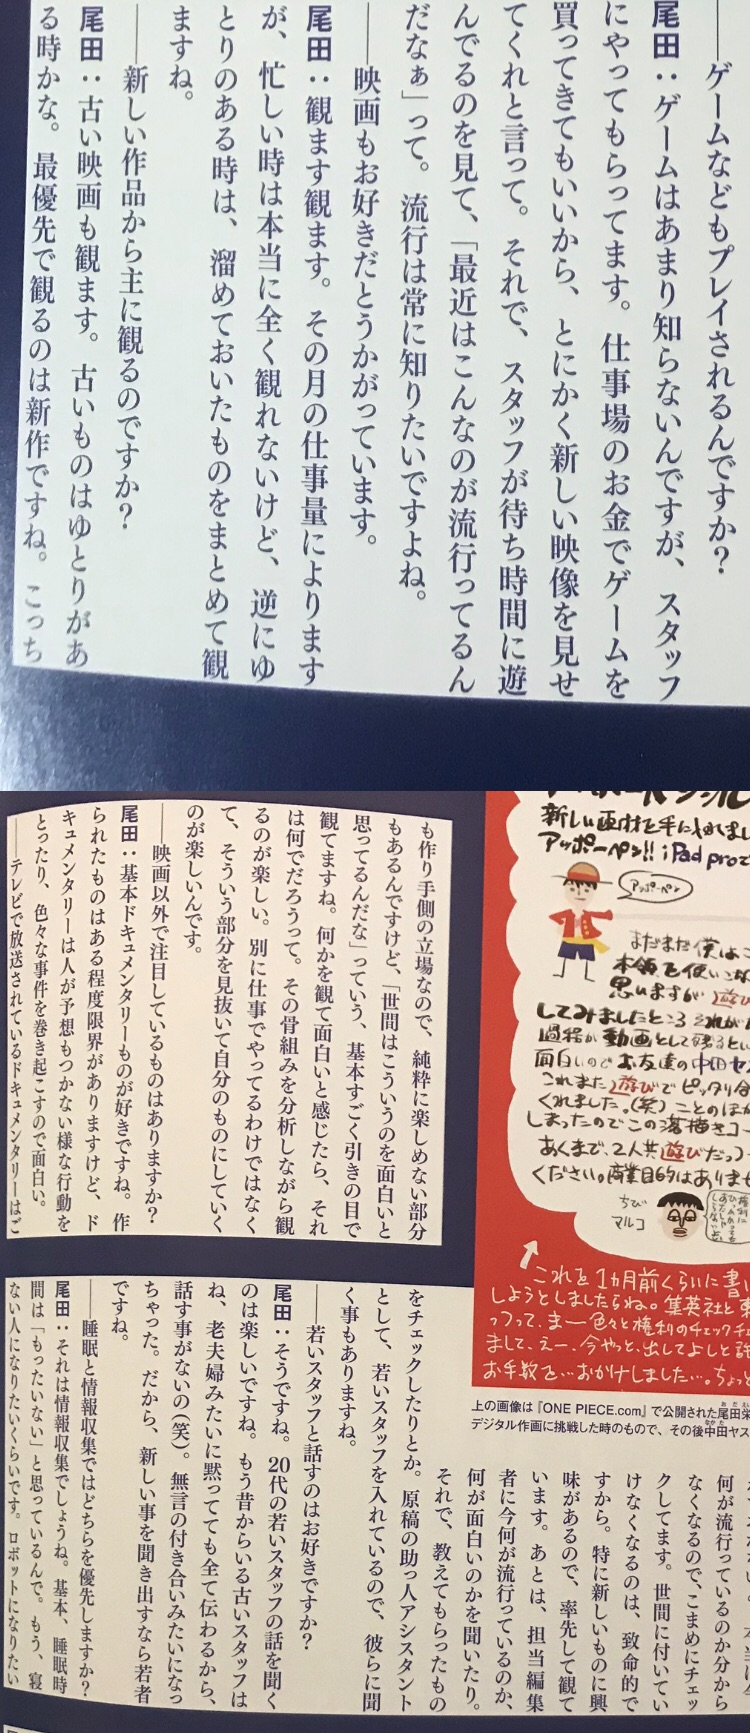 ――ゲームなどもプレイされるんですか?
尾田：ゲームはあまり知らないんですが、スタッフ
にやってもらってます。仕事場のお金でゲームを
買ってきてもいいから、とにかく新しい映像を見せ
てくれと言って。それで、スタッフが待ち時間に遊
んでるのを見て、「最近はこんなのが流行ってるん
だなぁ」って。流行は常に知りたいですよね。
――映画もお好きだとうかがっています。
尾田：観ます観ます。その月の仕事量によります
が、忙しい時は本当に全く観れないけど、逆にゆ
とりのある時は、溜めておいたものをまとめて観
ますね。
――新しい作品から主に観るのですか?
尾田：古い映画も観ます。古いものはゆとりがあ
る時かな。最優先で観るのは新作ですね。こっち
も作り手側の立場なので、純粋に楽しめない部分
もあるんですけど、「世間はこういうのを面白いと
思ってるんだな」っていう、基本すごく引きの目で
観てますね。何かを観て面白いと感じたら、それ
は何でだろうって。その骨組みを分析しながら観
るのが楽しい。別に仕事でやってるわけではなく
て、そういう部分を見抜いて自分のものにしていく
のが楽しいんです。
――映画以外で注目しているものはありますか?
尾田：基本ドキュメンタリーものが好きですね。作
られたものはある程度限界がありますけど、ド
キュメンタリーは人が予想もつかない様な行動を
とったり、色々な事件を巻き起こすので面白い。
――テレビで放送されているドキュメンタリーはご
新しい画材を手に入れまし
アッポーペン!! iPad proで
アッポーペン
まだまだ僕はこ
本領を使いこな
思いますが 遊び
してみましたところ それが
過程が動画として残るとい
面白いので お友達の中田ヤス
これまた遊びでピッタリ合
くれました。(笑) ことのほか
しまったのでこの落描きコー
あくまで、2人共遊びだっコー
ください。商業目的はありませ
ちび
マルコ
これを1ヵ月前くらいに書い
しようとしましたらね。集英社と東
っつって、まー色々と権利のチェックチェ
まして、えー、今やっと、出してよしと許
お手数を…おかけしました…。ちょっと
上の画像は『ONE PIECE.com』で公開された尾田栄
デジタル作画に挑戦した時のもので、その後中田ヤス
何が流行っているのか分から
なくなるので、こまめにチェッ
クしてます。世間に付いてい
けなくなるのは、致命的で
すから。特に新しいものに興
味があるので、率先して観て
います。あとは、担当編集
者に今何が流行っているのか、
何が面白いのかを聞いたり。
それで、教えてもらったもの
をチェックしたりとか。原稿の助っ人アシスタント
として、若いスタッフを入れているので、彼らに聞
く事もありますね。
――若いスタッフと話すのはお好きですか?
尾田：そうですね。20代の若いスタッフの話を聞く
のは楽しいですね。もう昔からいる古いスタッフは
ね、老夫婦みたいに黙ってても全て伝わるから、
話す事がないの(笑)。無言の付き合いみたいになっ
ちゃった。だから、新しい事を聞き出すなら若者
ですね。
――睡眠と情報収集ではどちらを優先しますか?
尾田：それは情報収集でしょうね。基本、睡眠時
間は「もったいない」と思っているんで。もう、寝
ない人になりたいくらいです。ロボットになりたい